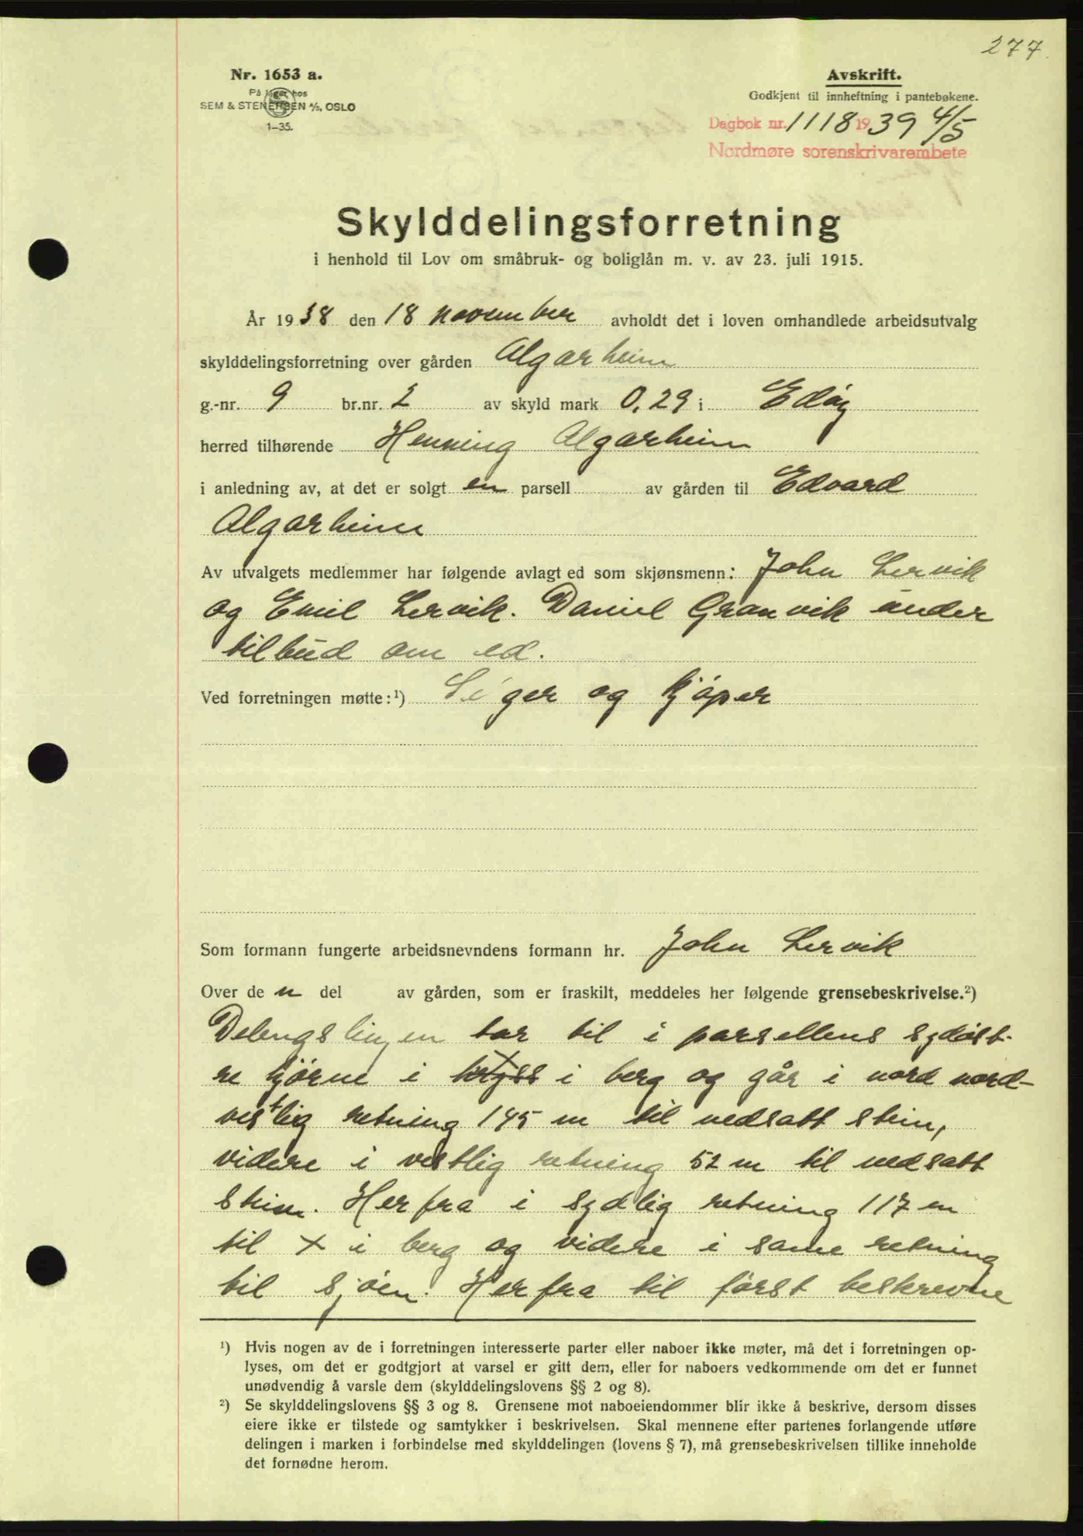 277.
Nr. 1653 a.
På lager hos
SEM & STENERSEN A/S, OSLO
1-35.
Avskrift.
Godkjent til innheftning i pantebøkene.
Dagbok nr. 1118 1939 4/5
Nordmøre sorenskrivarembete
Skylddelingsforretning
i henhold til Lov om småbruk- og boliglån m. v. av 23. juli 1915.
År 1938 den 18 november avholdt det i loven omhandlede arbeidsutvalg
skylddelingsforretning over gården Algarheim
g.-nr. 9 br.nr. 2 av skyld mark 0,29 i Edøy
herred tilhørende Henning Algarheim
i anledning av, at det er solgt en parsell av gården til Edvard
Algarheim
Av utvalgets medlemmer har følgende avlagt ed som skjønsmenn: John Lervik
og Emil Lervik. Daniel Granvik under
tilbud om ed.
Ved forretningen møtte:¹) Sæger og kjøper
Som formann fungerte arbeidsnevndens formann hr. John Lervik
Over de n del av gården, som er fraskilt, meddeles her følgende grensebeskrivelse.²)
Delengslinjen tar til i parsellens sydøst-
re hjørne i kryss i berg og går i nord nord-
vestlig retning 145 m til nedsatt stein,
videre i vestlig retning 52 m til nedsatt
stein. Herfra i sydlig retning 117 m
til x i berg og videre i same retning
til sjøen. Herfra til først beskrevne
¹) Hvis nogen av de i forretningen interesserte parter eller naboer ikke møter, må det i forretningen op-
lyses, om det er godtgjort at varsel er gitt dem, eller for naboers vedkommende om det er funnet
unødvendig å varsle dem (skylddelingslovens §§ 2 og 8).
²) Se skylddelingslovens §§ 3 og 8. Grensene mot naboeiendommer blir ikke å beskrive, dersom disses
eiere ikke er tilstede og samtykker i beskrivelsen. Skal mennene efter partenes forlangende utføre
delingen i marken i forbindelse med skylddelingen (lovens § 7), må grensebeskrivelsen tillike inneholde
det fornødne herom.